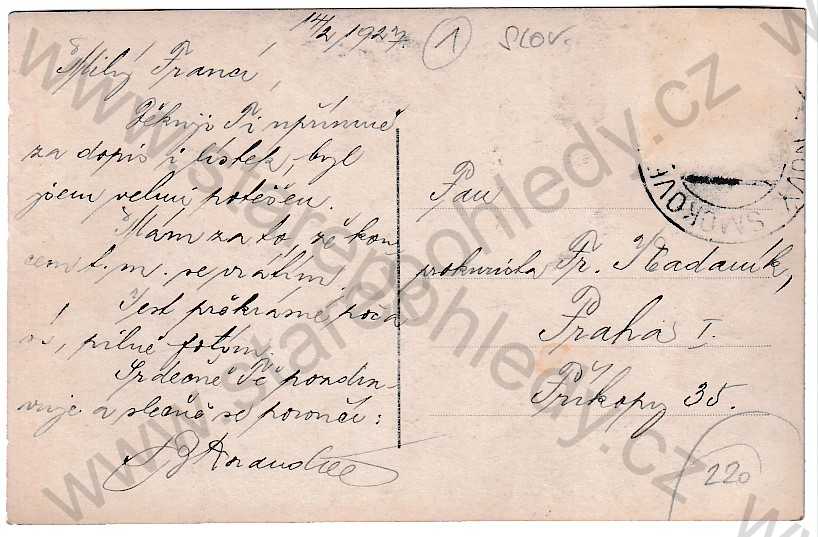 14/2 1927.
1
SLOV.
Milý Franci,
Děkuji Ti upřímně
za dopis i lístek, byl
jsem velmi potěšen.
Mám za to, že kon-
cem t. m. se vrátím
Jest překrásné poča-
sí, pilně fotím.
Srdečně Tě pozdra-
vuje a slečně se poroučí:
Pan
prokurista Fr. Hadaník,
Praha I.
Příkopy 35.
220
SMOKOV
NOVÝ
www.starepohledy.cz
www.starepohledy.cz